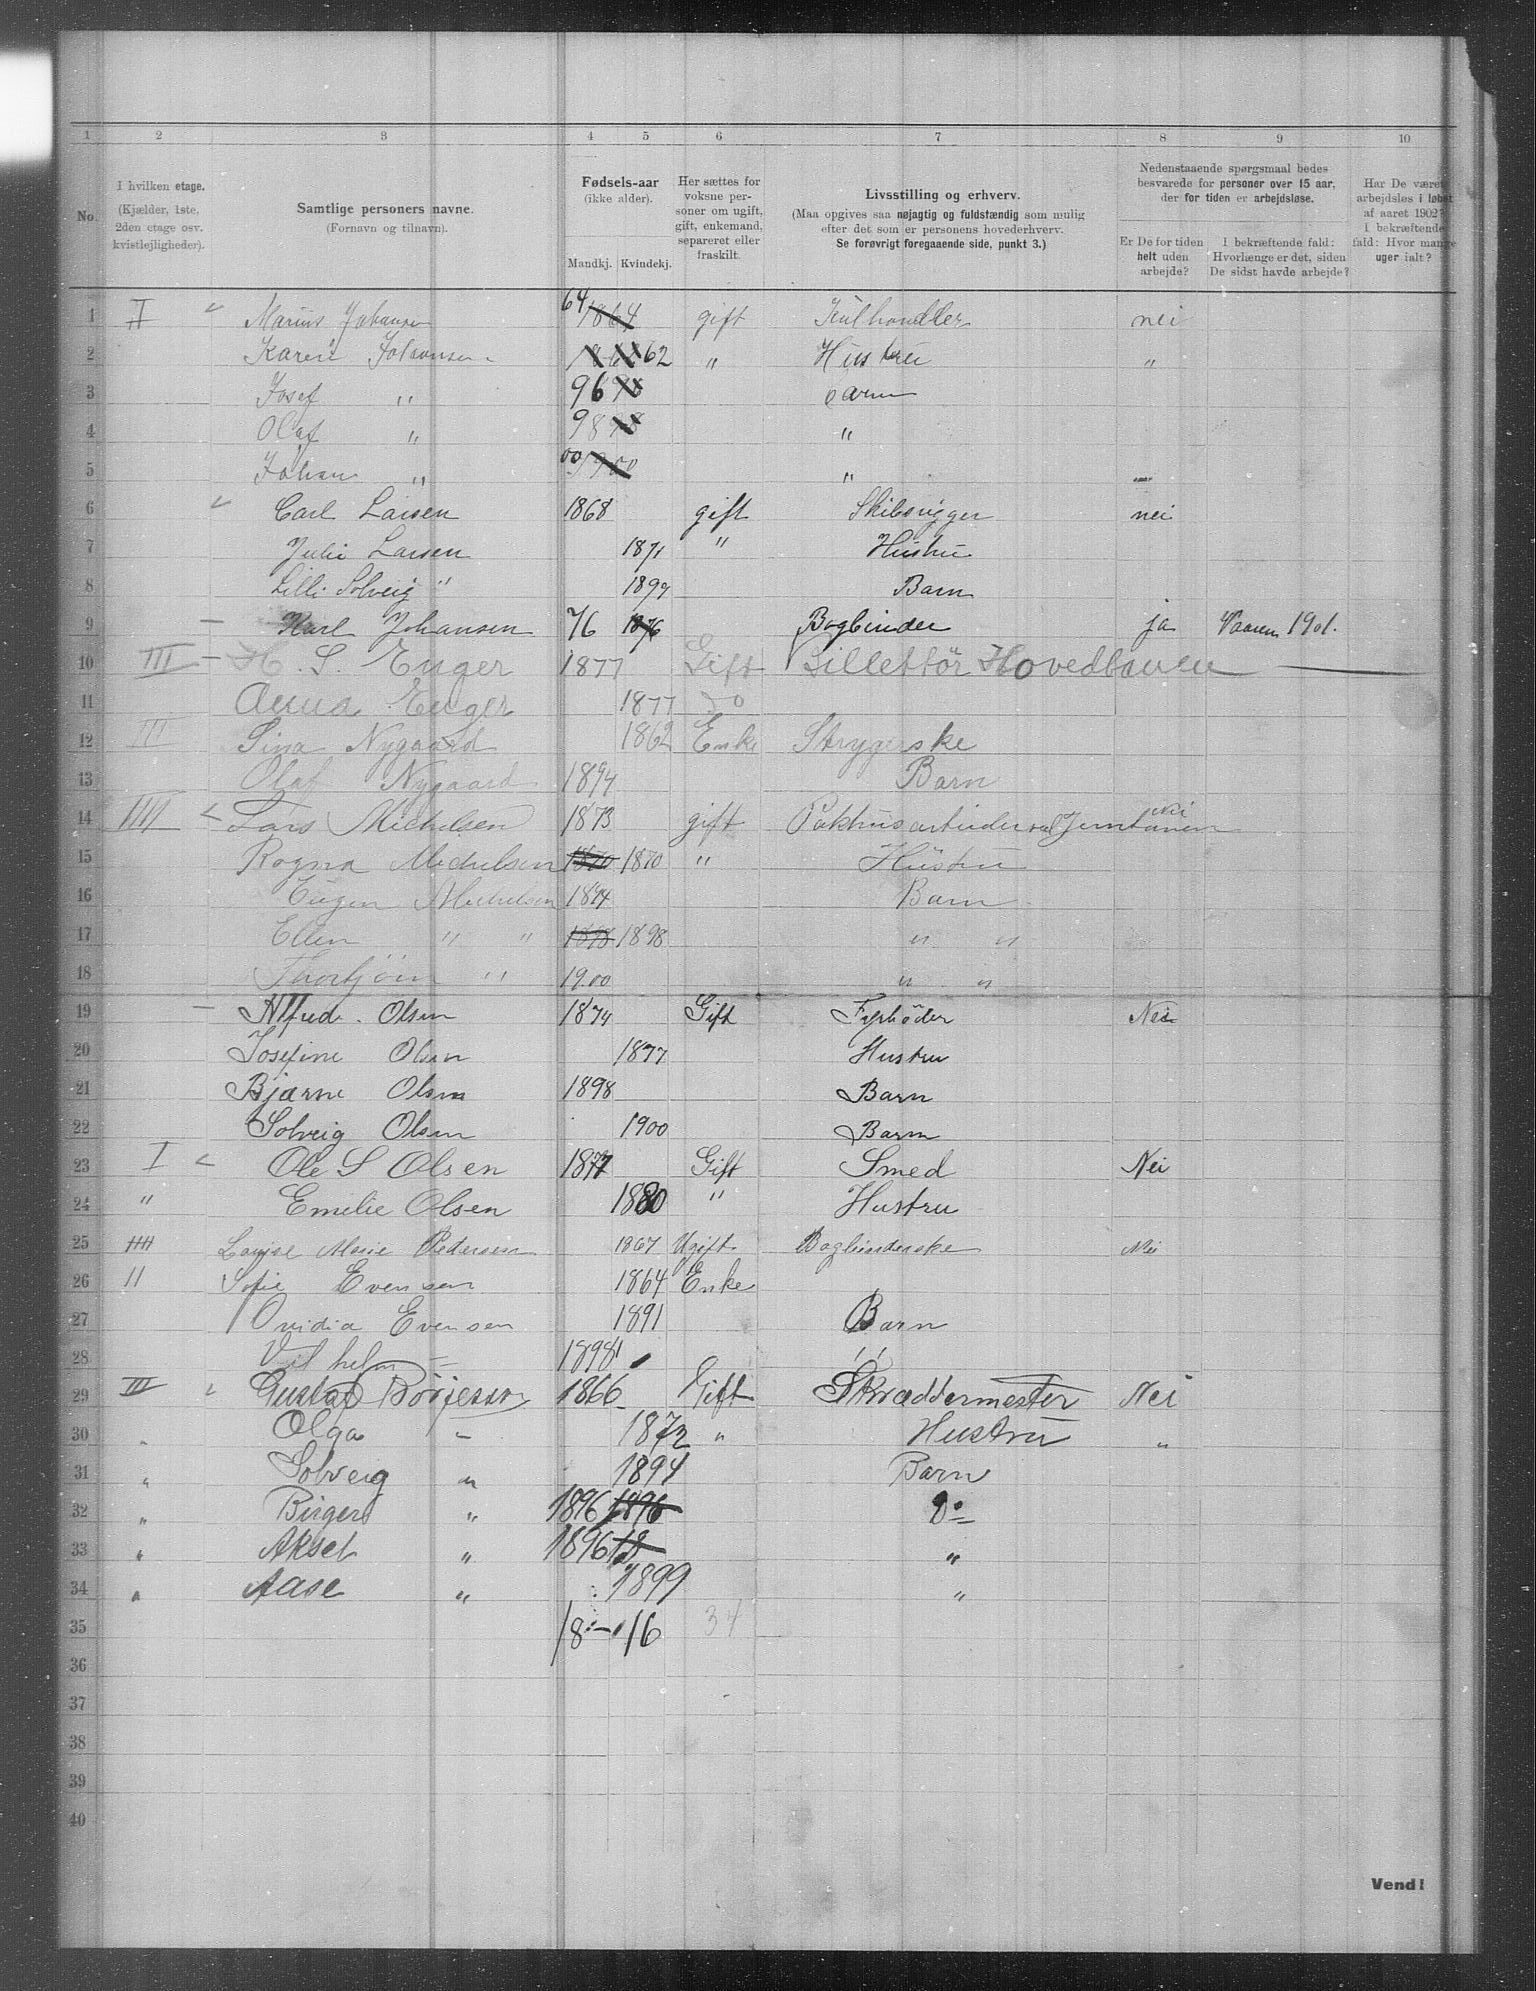 1 2 3 4 5 6 7 8 9 10
No.
I hvilken etage.
(Kjælder, 1ste,
2den etage osv.
kvistlejligheder).
Samtlige personers navne.
(Fornavn og tilnavn).
Fødsels-aar
(ikke alder).
Mandkj. Kvindekj.
Her sættes for
voksne per-
soner om ugift,
gift, enkemand,
separeret eller
fraskilt.
Livsstilling og erhverv.
(Maa opgives saa nøjagtig og fuldstændig som mulig
efter det som er personens hovederhverv.
Se forøvrigt foregaaende side, punkt 3.)
Nedenstaaende spørgsmaal bedes
besvarede for personer over 15 aar,
der for tiden er arbejdsløse.
Er De for tiden
helt uden
arbejde?
I bekræftende fald:
Hvorlænge er det, siden
De sidst havde arbejde?
Har De været
arbejdsløs i løbet
af aaret 1902?
I bekræftende
fald: Hvor mange
uger ialt?
1 II Marius Johansen 64 1864 gift Kulhandler nei
2 Karen Johansen 62 " Hustru "
3 Josef " 96 Barn
4 Olaf " 98 "
5 Johan " 00 1900 "
6 Carl Larsen 1868 gift Skibsrigger nei
7 Julie Larsen 1871 " Hustru
8 Lilli Solveig " 1899 Barn
9 Karl Johansen 76 1876 Bogbinder ja Vaaren 1901.
10 III H. S. Enger 1877 Gift Billettör Hovedbanen
11 Anna Enger 1877 do
12 III Sina Nygaard 1862 Enke Strygerske
13 Olaf Nygaard 1894 Barn
14 IIII Lars Michelsen 1873 gift Pakhusarbeider ved Jernbanen Nei
15 Ragna Michelsen 1870 1870 " Hustru
16 Eugen Michelsen 1894 Barn
17 Ellen " " 1898 1898 " "
18 Thorbjörn " 1900 " "
19 Alfred Olsen 1874 Gift Fyrböder Nei
20 Josefine Olsen 1877 Hustru
21 Bjarne Olsen 1898 Barn
22 Solveig Olsen 1900 Barn
23 I Ole S Olsen 1877 Gift Smed Nei
24 " Emilie Olsen 1880 " Hustru
25 IIII Lovise Marie Pedersen 1867 Ugift Bogbinderske Nei
26 II Sofie Evensen 1864 Enke
27 Ovidia Evensen 1891 Barn
28 Vilhelm — 1898 "
29 III Gustaf Börjesson 1866 Gift Skræddermester Nei
30 " Olga — 1872 " Hustru "
31 " Solveig " 1894 Barn
32 " Birger " 1896 1896 Do
33 " Aksel " 1896 18 "
34 " Aase " 1899 "
35 18 — 16 34
36
37
38
39
40
Vend!